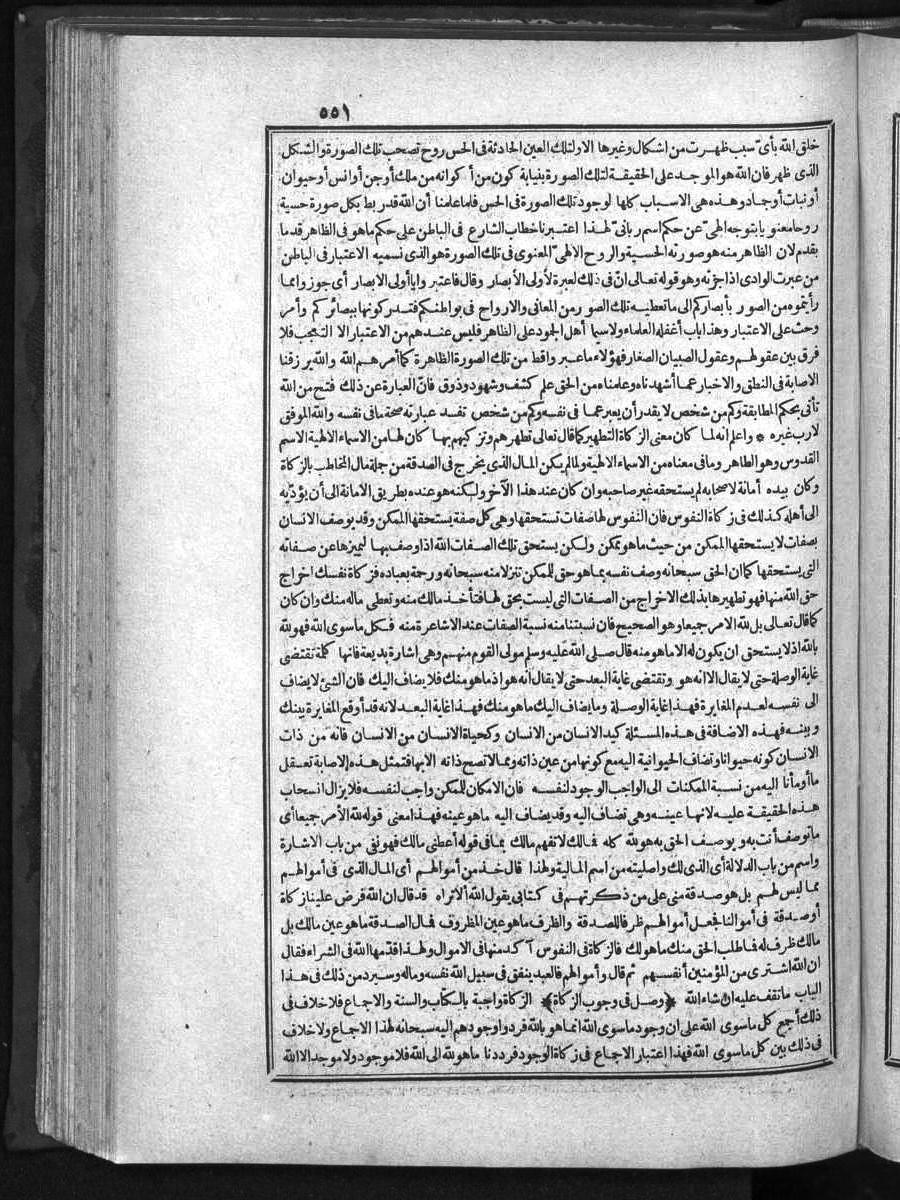 ٥٥١
خلق الله بأى سبب ظهرت من اشكال وغيرها الا ولتلك العين الحادثة فى الحس روح تصحب تلك الصورة والشكل
الذى ظهر فان الله هو الموجد على الحقيقة لتلك الصورة بنيابة كون من أكوانه من ملك أو جن أو انس أو حيوان
أو نبات أو جماد وهذه هى الاسباب كلها لوجود تلك الصورة فى الحس فلما علمنا أن الله قد ربط بكل صورة حسية
روحا معنويا بتوجه الهىّ عن حكم اسم ربانىّ لهذا اعتبرنا خطاب الشارع فى الباطن على حكم ما هو فى الظاهر قدما
بقدم لان الظاهر منه هو صورته الحسية والروح الالهىّ المعنوى فى تلك الصورة هو الذى نسميه الاعتبار فى الباطن
من عبرت الوادى اذا جزته وهو قوله تعالى انّ فى ذلك لعبرة لأولى الأبصار وقال فاعتبروا يا أولى الابصار أى جوزوا مما
رأيتموه من الصور بأبصاركم الى ما تعطيه تلك الصور من المعانى والارواح فى بواطنكم فتدركونها ببصائركم وأمر
وحث على الاعتبار وهذا باب أغفله العلماء ولاسيما أهل الجمود على الظاهر فليس عندهم من الاعتبار الا التعجب فلا
فرق بين عقولهم وعقول الصبيان الصغار فهؤلاء ما عبروا قط من تلك الصورة الظاهرة كما أمرهم الله والله يرزقنا
الاصابة فى النطق والاخبار عما أشهدناه وعلمناه من الحق علم كشف وشهود وذوق فانّ العبارة عن ذلك فتح من الله
تأتى بحكم المطابقة وكم من شخص لا يقدر أن يعبر عما فى نفسه وكم من شخص تفسد عبارته صحة ما فى نفسه والله الموفق
لا رب غيره * واعلم انه لما كان معنى الزكاة التطهير كما قال تعالى تطهرهم وتزكيهم بها كان لها من الاسماء الالهية الاسم
القدوس وهو الطاهر وما فى معناه من الاسماء الالهية ولما لم يكن المال الذى يخرج فى الصدقة من جملة مال المخاطب بالزكاة
وكان بيده أمانة لاصحابه لم يستحقه غير صاحبه وان كان عند هذا الآخر ولكنه هو عنده بطريق الامانة الى أن يؤدّيه
الى أهله كذلك فى زكاة النفوس فان النفوس لها صفات تستحقها وهى كل صفة يستحقها الممكن وقد يوصف الانسان
بصفات لا يستحقها الممكن من حيث ما هو ممكن ولكن يستحق تلك الصفات الله اذا وصف بها ليميزها عن صفاته
التى يستحقها كما ان الحق سبحانه وصف نفسه بما هو حق للممكن تنزلا منه سبحانه ورحمة بعباده فزكاة نفسك اخراج
حق الله منها فهو تطهيرها بذلك الاخراج من الصفات التى ليست بحق لها فتأخذ مالك منه وتعطى ماله منك وان كان
كما قال تعالى بل لله الامر جميعا وهو الصحيح فان نسبتنا منه نسبة الصفات عند الاشاعرة منه فكل ما سوى الله فهو لله
بالله اذ لا يستحق ان يكون له الا ما هو منه قال صلى الله عليه وسلم مولى القوم منهم وهى اشارة بديعة فانها كلمة تقتضى
غاية الوصلة حتى لا يقال الا انه هو وتقتضى غاية البعد حتى لا يقال انه هو اذ ما هو منك فلا يضاف اليك فان الشئ لا يضاف
الى نفسه لعدم المغايرة فهذا غاية الوصلة وما يضاف اليك ما هو منك فهذا غاية البعد لانه قد أوقع المغايرة بينك
وبينه فهذه الاضافة فى هذه المسئلة كيد الانسان من الانسان وكحياة الانسان من الانسان فانه من ذات
الانسان كونه حيوانا وتضاف الحيوانية اليه مع كونها من عين ذاته ومما لا تصح ذاته الا بها فتمثل هذه الاصابة تعقل
ما أومأنا اليه من نسبة الممكنات الى الواجب الوجود لنفسه فان الامكان للممكن واجب لنفسه فلا يزال انسحاب
هذه الحقيقة عليه لانها عينه وهى تضاف اليه وقد يضاف اليه ما هو عينه فهذا معنى قوله لله الأمر جميعا أى
ما توصف أنت به ويوصف الحق به هو لله كله فمالك لا تفهم مالك بما فى قوله أعطنى مالك فهو نفى من باب الاشارة
واسم من باب الدلالة أى الذى لك واصليته من اسم المالية ولهذا قال خذ من أموالهم أى المال الذى فى أموالهم
مما ليس لهم بل هو صدقة منى على من ذكرتهم فى كتابى يقول الله ألا تراه قد قال ان الله فرض علينا زكاة
أو صدقة فى أموالنا فجعل أموالهم ظرفا للصدقة والظرف ما هو عين المظروف فمال الصدقة ما هو عين مالك بل
مالك ظرف له فما طلب الحق منك ما هو لك فالزكاة فى النفوس آكد منها فى الاموال ولهذا قدّمها الله فى الشراء فقال
ان الله اشترى من المؤمنين أنفسهم ثم قال وأموالهم فالعبد ينفق فى سبيل الله نفسه وماله وسيرد من ذلك فى هذا
الباب ما تقف عليه ان شاء الله ﴿وصل فى وجوب الزكاة﴾ الزكاة واجبة بالكتاب والسنة والاجماع فلا خلاف فى
ذلك أجمع كل ما سوى الله على ان وجود ما سوى الله انما هو بالله فردوا وجودهم اليه سبحانه لهذا الاجماع ولا خلاف
فى ذلك بين كل ما سوى الله فهذا اعتبار الاجماع فى زكاة الوجود فرددنا ما هو لله الى الله فلا موجود ولا موجد الا الله